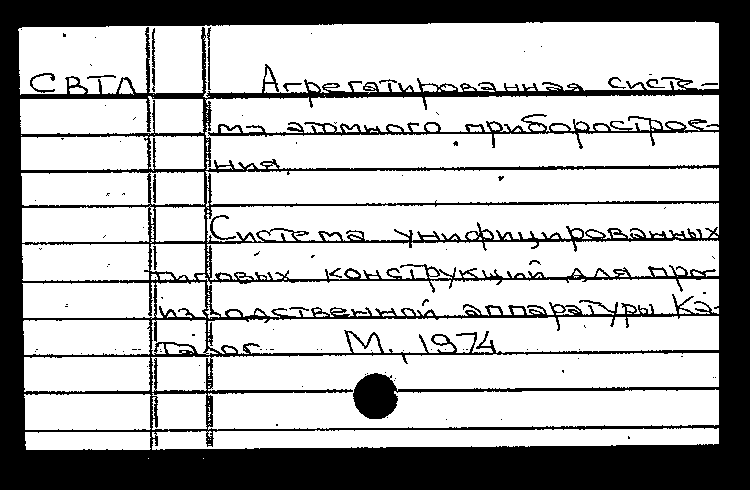 СВТЛ Агрегатированная систе-
ма атомного приборострое-
ния.
Система унифицированных
типовых конструкций для про-
изводственной аппаратуры Ка-
талог М., 1974